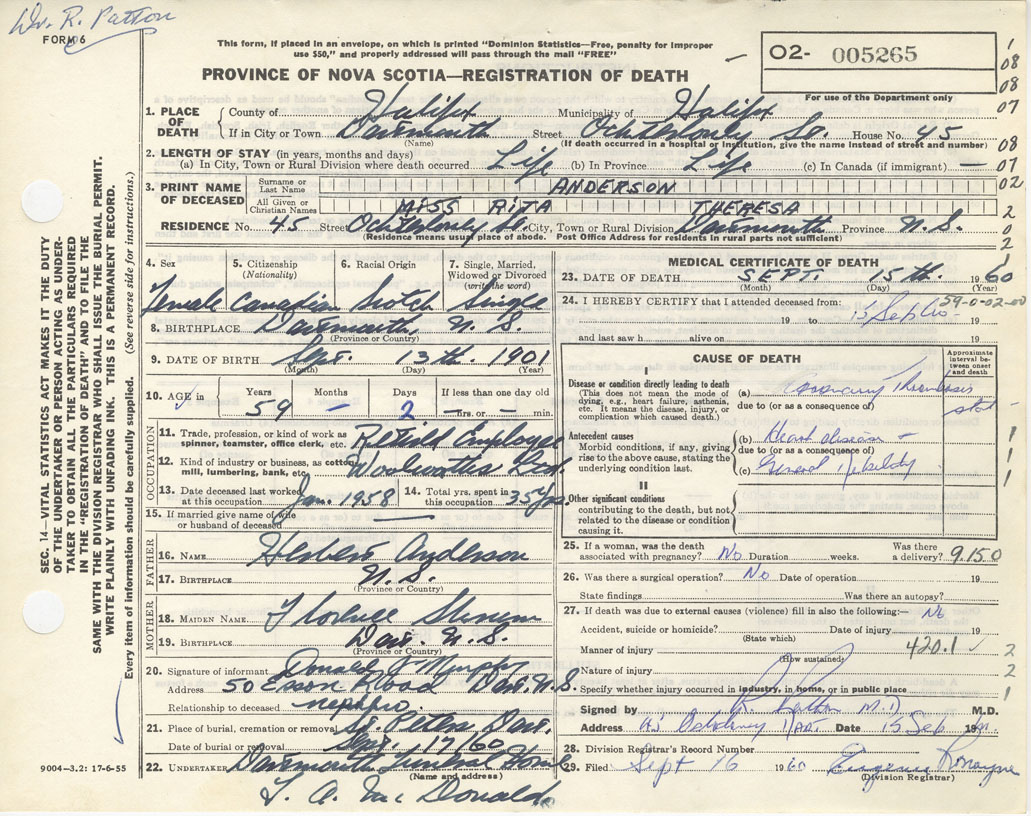 Dr. R. Patton
FORM 6
This form, if placed in an envelope, on which is printed "Dominion Statistics—Free, penalty for improper
use $50," and properly addressed will pass through the mail "FREE"
PROVINCE OF NOVA SCOTIA—REGISTRATION OF DEATH
02- 005265
For use of the Department only
1. PLACE OF DEATH { County of Halifax Municipality of Halifax
If in City or Town Dartmouth Street Ochterloney St. House No. 45
(Name) (If death occurred in a hospital or institution, give the name instead of street and number)
2. LENGTH OF STAY (in years, months and days)
(a) In City, Town or Rural Division where death occurred Life (b) In Province Life (c) In Canada (if immigrant) —
3. PRINT NAME OF DECEASED
Surname or Last Name ANDERSON
All Given or Christian Names MISS RITA THERESA
RESIDENCE No. 45 Street Ochterloney St. City, Town or Rural Division Dartmouth Province N.S.
(Residence means usual place of abode. Post Office Address for residents in rural parts not sufficient)
4. Sex 5. Citizenship (Nationality) 6. Racial Origin 7. Single, Married, Widowed or Divorced (write the word)
Female Canadian Scotch Single
8. BIRTHPLACE Dartmouth, N.S.
(Province or Country)
9. DATE OF BIRTH Sept. 13th. 1901
(Month) (Day) (Year)
10. AGE in Years Months Days If less than one day
59 — 2 — hrs. or — min.
OCCUPATION
11. Trade, profession, or kind of work as spinner, teamster, office clerk, etc. Retail Employee
12. Kind of industry or business, as cotton mill, lumbering, bank, etc. Woolworths Ltd.
13. Date deceased last worked at this occupation Jan. 1958 14. Total yrs. spent in this occupation 35 yrs.
15. If married give name of wife or husband of deceased —
FATHER
16. NAME Herbert Anderson
17. BIRTHPLACE N.S.
(Province or Country)
MOTHER
18. MAIDEN NAME Florence
19. BIRTHPLACE Dart. N.S.
(Province or Country)
20. Signature of informant Donald F Murphy
Address 50 Road Dart. N.S.
Relationship to deceased nephew
21. Place of burial, cremation or removal St. Peters Dart.
Date of burial or removal Sept. 17/60
22. UNDERTAKER Dartmouth Funeral Home
(Name and address)
A. Mac Donald
MEDICAL CERTIFICATE OF DEATH
23. DATE OF DEATH SEPT. 15th. 1960
(Month) (Day) (Year)
24. I HEREBY CERTIFY that I attended deceased from: 59-0-02-00
19 to 15 Sept 60 19
and last saw h alive on 19
CAUSE OF DEATH
Approximate interval between onset and death
I
Disease or condition directly leading to death
(This does not mean the mode of dying, e.g., heart failure, asthenia, etc. It means the disease, injury, or complication which caused death.)
(a) Coronary Thrombosis
due to (or as a consequence of)
Antecedent causes
Morbid conditions, if any, giving rise to the above cause, stating the underlying condition last.
(b) Heart disease —
due to (or as a consequence of)
(c) General debility
II
Other significant conditions
contributing to the death, but not related to the disease or condition causing it.
25. If a woman, was the death associated with pregnancy? No Duration weeks. Was there a delivery? 9.15.0
26. Was there a surgical operation? No Date of operation 19
State findings Was there an autopsy?
27. If death was due to external causes (violence) fill in also the following:— No
Accident, suicide or homicide? Date of injury 19
(State which)
Manner of injury 420.1
(How sustained)
Nature of injury
Specify whether injury occurred in industry, in home, or in public place
Signed by R Patton M.D. M.D.
Address Date 15 Sep 19
28. Division Registrar's Record Number
29. Filed Sept 16 1960 Eugene Ronayne
(Division Registrar)
SEC. 14—VITAL STATISTICS ACT MAKES IT THE DUTY
OF THE UNDERTAKER OR PERSON ACTING AS UNDER-
TAKER TO OBTAIN ALL THE PARTICULARS REQUIRED
IN THE "REGISTRATION OF DEATH" AND FILE THE
SAME WITH THE DIVISION REGISTRAR WHO SHALL ISSUE THE BURIAL PERMIT.
WRITE PLAINLY WITH UNFADING INK. THIS IS A PERMANENT RECORD.
Every item of information should be carefully supplied. (See reverse side for instructions.)
9004-3.2: 17-6-55
1
08
08
07
08
07
02
2
0
2
1
1
1
2
2
1